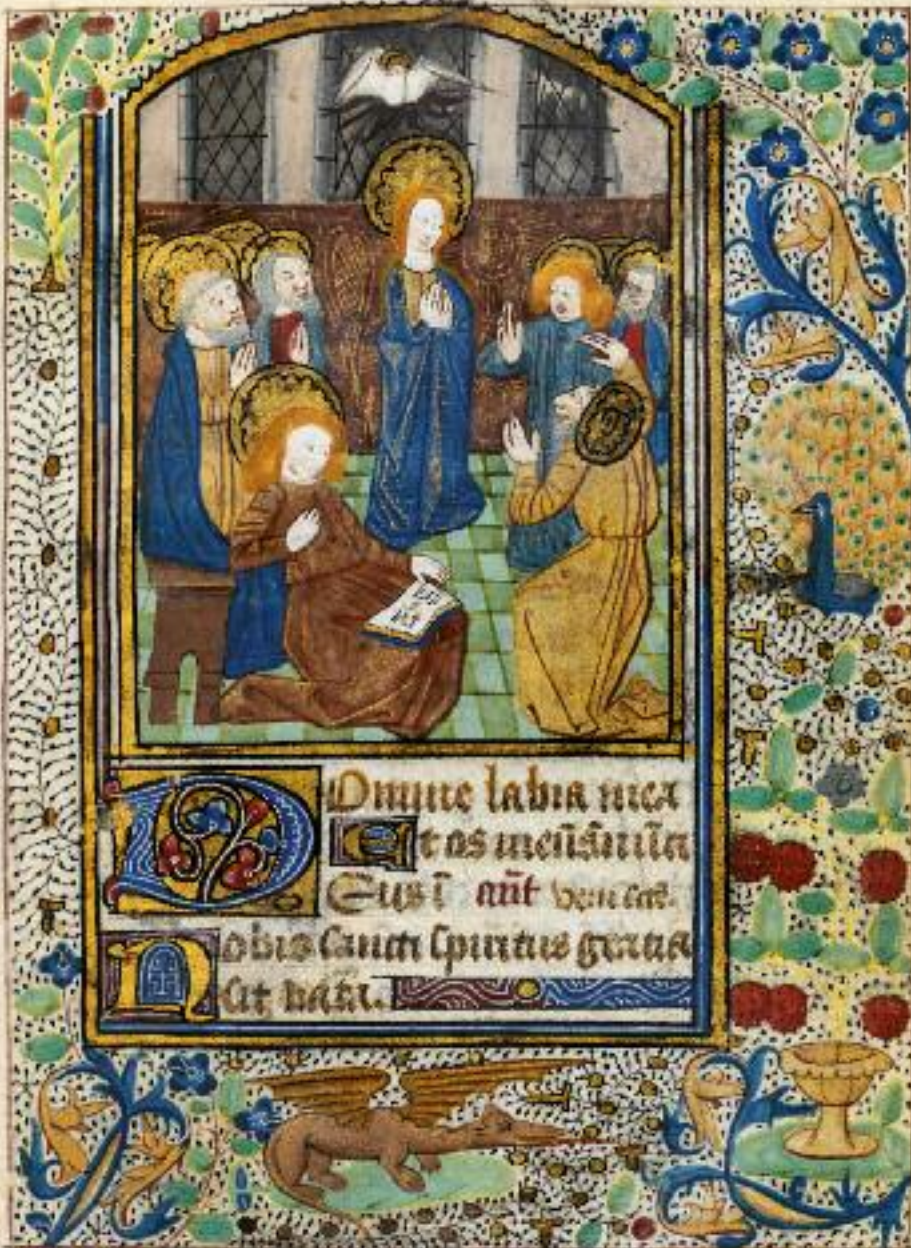 Domine labia mea
Et os meū
Deus ī
Nobis sancti spiritus gratia
sit data.